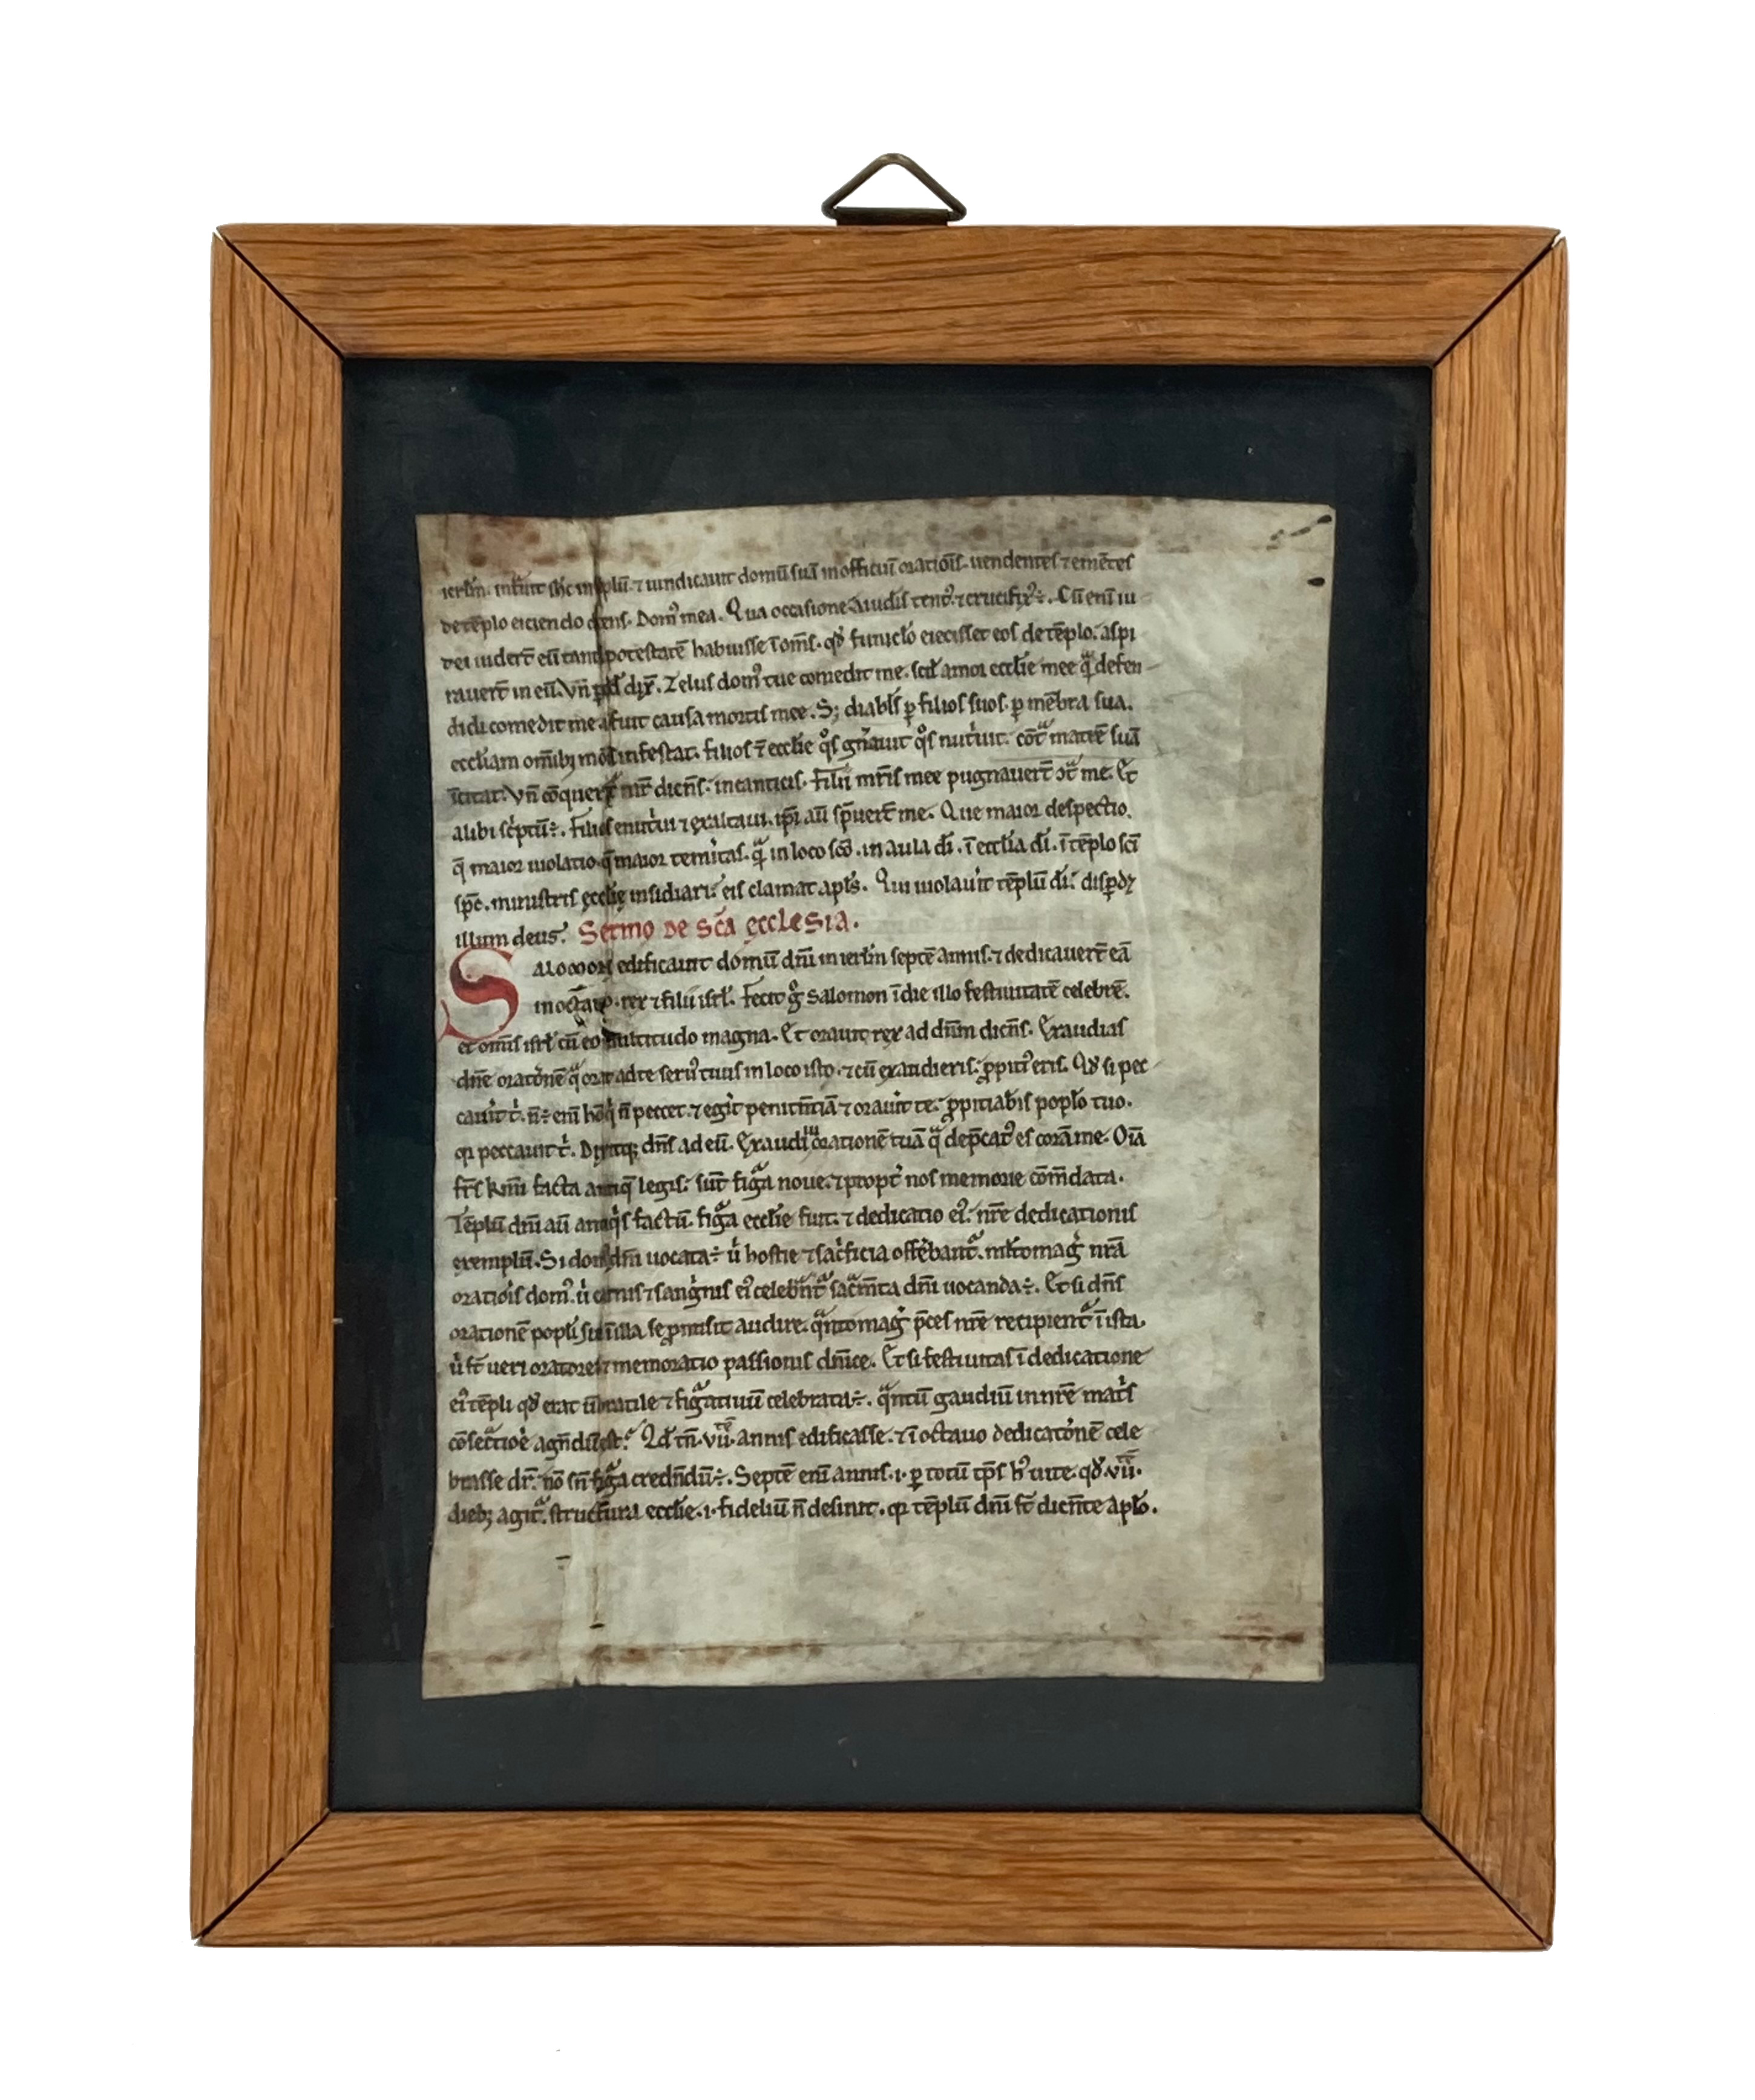 ierl̄m. int̾uit ſic in tēplū. ⁊ uindicauit domū ſuā in officiū orōis. uendentes ⁊ emētes
de tēplo eiciendo dicens. Dom᷒ mea. Qua occaſione a iudīs tent᷒. ⁊ crucifix᷒ ÷. Cū enī iu
dei uider̄t eū tantā poteſtatē habuiſſe ī om̄s. qđ funiclo eieciſſet eos de tēplo. aſpi
rauer̄t in eū. Vn̄ dix̄. Zelus dom᷒ tue comedit me. ſcil̄ amor eccl̄ie mee q̄ᵃ defen
di di comedit me ⁊ fuit cauſa mortis mee. S; diabl̄s ꝑ filios ſuos. ꝑ mēbra ſua.
eccl̄iam omīb; mođ infeſtat. filios ī eccl̄ie qͦs gn̄auit qͦs nut͛uit. cōtᵃ matrē ſuā
īcitat. Vn̄ cōquer̄ dicēs. in canticis. Filii mr̄is mee pugnauer̄t ↄtᵃ me. Et
alibi ſc͛ptū ÷. Filios enut͛ui ⁊ exaltaui. ip̄i aū ſp̄uer̄t me. Que maior deſpectio.
q̄ maior uiolatio. q̄ maior tem̄itas. qᵃ̄ in loco ſcō. in aula dī. ī eccl̄ia dī. ī tēplo ſcī
ſp̄c. miniſtris ęccl̄ię inſidiari. eis clamat apl̄s. Qui uiolau͛it tēplū dī. diſpđꝫ
illum deus. Sermo de sc̄a ęcclesia.
SALOMON edificauit domū dn̄i in ierl̄m ſeptē annis. ⁊ dedicauer̄t eā
in octauo. rex ⁊ filii iſrl̄. Fecit gͦ Salomon ī die illo feſtiuitatē celebrē.
et omīs iſrl̄ cū eo multitudo magna. Et orauit rex ad dn̄m dicēs. Exaudias
dn̄e oratōnē qᵃ̄ orat ad te ſeru᷒ tuus in loco iſto. ⁊ cū exaudieris. ꝓpiti᷒ eris. Qđ ſi pec
cau͛it t͛. n̄ ÷ enī hō q͛ n̄ peccet. ⁊ eg͛it penitn̄tiā ⁊ orau͛it te. ꝓpitiab͛is popl̄o tuo.
qꝛ peccauit t͛. Dixitq; dn̄s ad eū. Exaudiui orationē tuā qᵃ̄ dep̄cat᷒ es corā me. Oīa
fr̄s km̄i facta antiq̄ legis. ſūt figᵃ̄ noue. ⁊ propt͛ nos memorie cōm̄data.
Tēplū dn̄i aū antiqͥs factū. figᵃ̄ eccl̄ie fuit. ⁊ dedicatio ei᷒. nr̄e dedicationis
exemplū. Si dom᷒ dn̄i uocata ÷ u͛ hoſtie ⁊ ſac͛ficia offēbantᵃ. ml̄tomagͥ nr̄ā
oratiōis dom᷒. u͛ carnis ⁊ ſangͥnis ei᷒ celebn̄tᵃ ſacᵃm̄ta dn̄i uocanda ÷. Et ſi dn̄s
orationē popl̄i ſui ī illa ſe ꝓmiſit audire. qᵃntomagͥ p̄ces nr̄e recipientᵃ ī iſta.
u͛ ſt̄ ueri oratores ⁊ memoratio paſſionis dn̄ice. Et ſi feſtiuitas ī dedicatione
ei᷒ tēpli qđ erat ūbratile ⁊ figᵃ̄tiuū celebrata ÷. qᵃntū gaudiū in nr̄e mat͛s
cōſecᵃtiōe agn̄dū eſt. Qđ tn̄ .vii. annis edificaſſe. ⁊ ī octauo dedicatōnē cele
braſſe dr̄. nō ſn̄ figᵃ̄ credn̄dū ÷. Septē enī annis .i. ꝑ totū tp̄s hͥ uite. qđ .vii.
dieb; agit᷒. ſtructura eccl̄ie .i. fideliū n̄ deſinit. qꝛ tēplū dn̄i ſt̄ dicēte apl̄o.